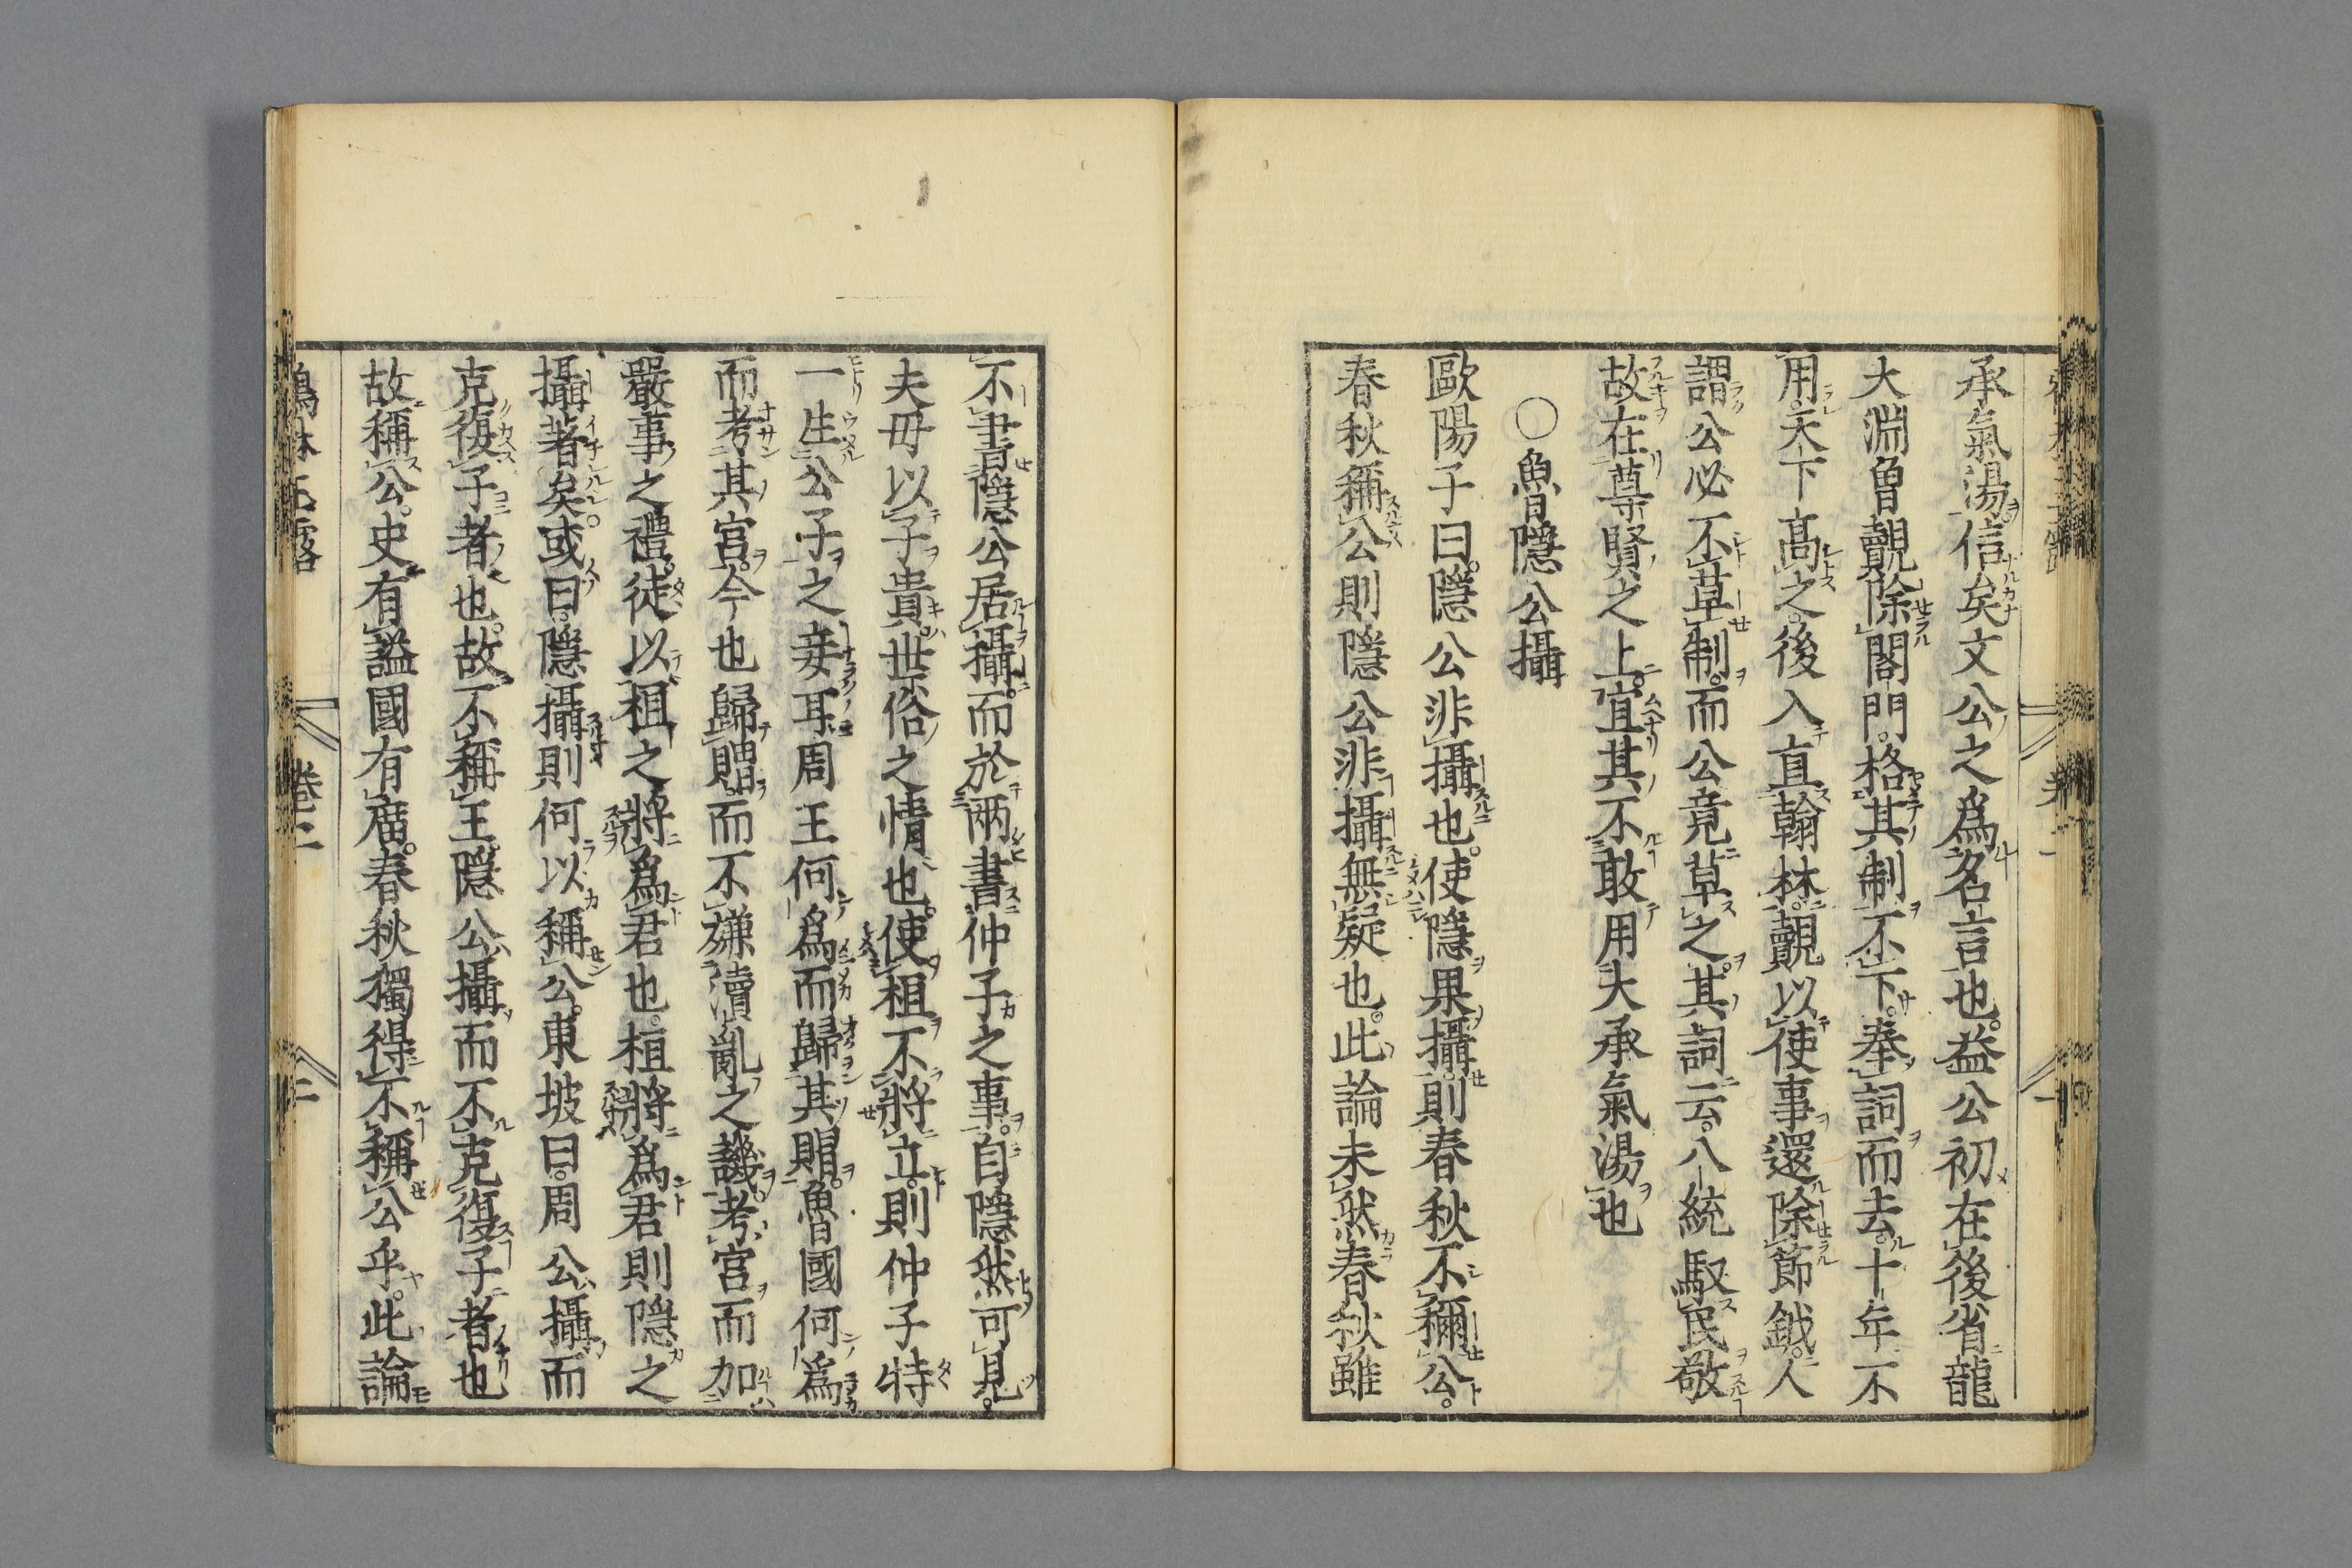 承氣湯信矣文公之爲名言也。益公初在後省龍
大淵曾覿除閤門。格其制不下。奉詞而去。十年不
用。天下高之。後入直翰林。覿以使事還除節鉞。人
謂公必不草制。而公竟草之。其詞云。八統馭民敬
故在尊賢之上。宜其不敢用大承氣湯也
○魯隱公攝
歐陽子曰。隱公非攝也。使隱果攝。則春秋不稱公。
春秋稱公則隱公非攝無疑也。此論未然春秋雖
不書隱公居攝。而於兩書仲子之事。自隱然可見。
夫母以子貴。世俗之情也。使桓不將立。則仲子特
一生公子之妾耳周王何爲而歸其賵。魯國何爲
而考其官。今也歸賵。而不嫌瀆亂之譏。考宮而加
嚴事之禮。徒以桓之將爲君也。桓將爲君則隱之
攝著矣。或曰。隱攝則何以稱公。東坡曰。周公攝而
克復子者也。故不稱王。隱公攝而不克復子者也
故稱公。史有謚國有廟。春秋獨得不稱公乎。此論
鶴林玉露
卷二
二